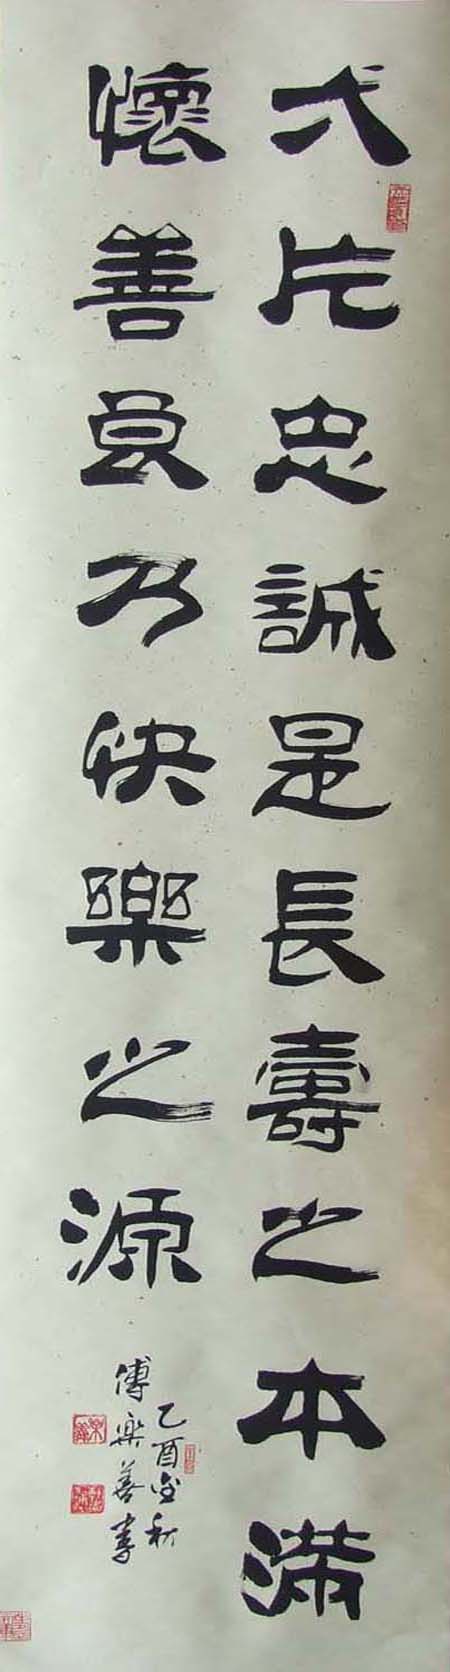 弌片忠誠是長壽之本滿
懷善良乃快樂之源
乙酉金秋
傅樂善書